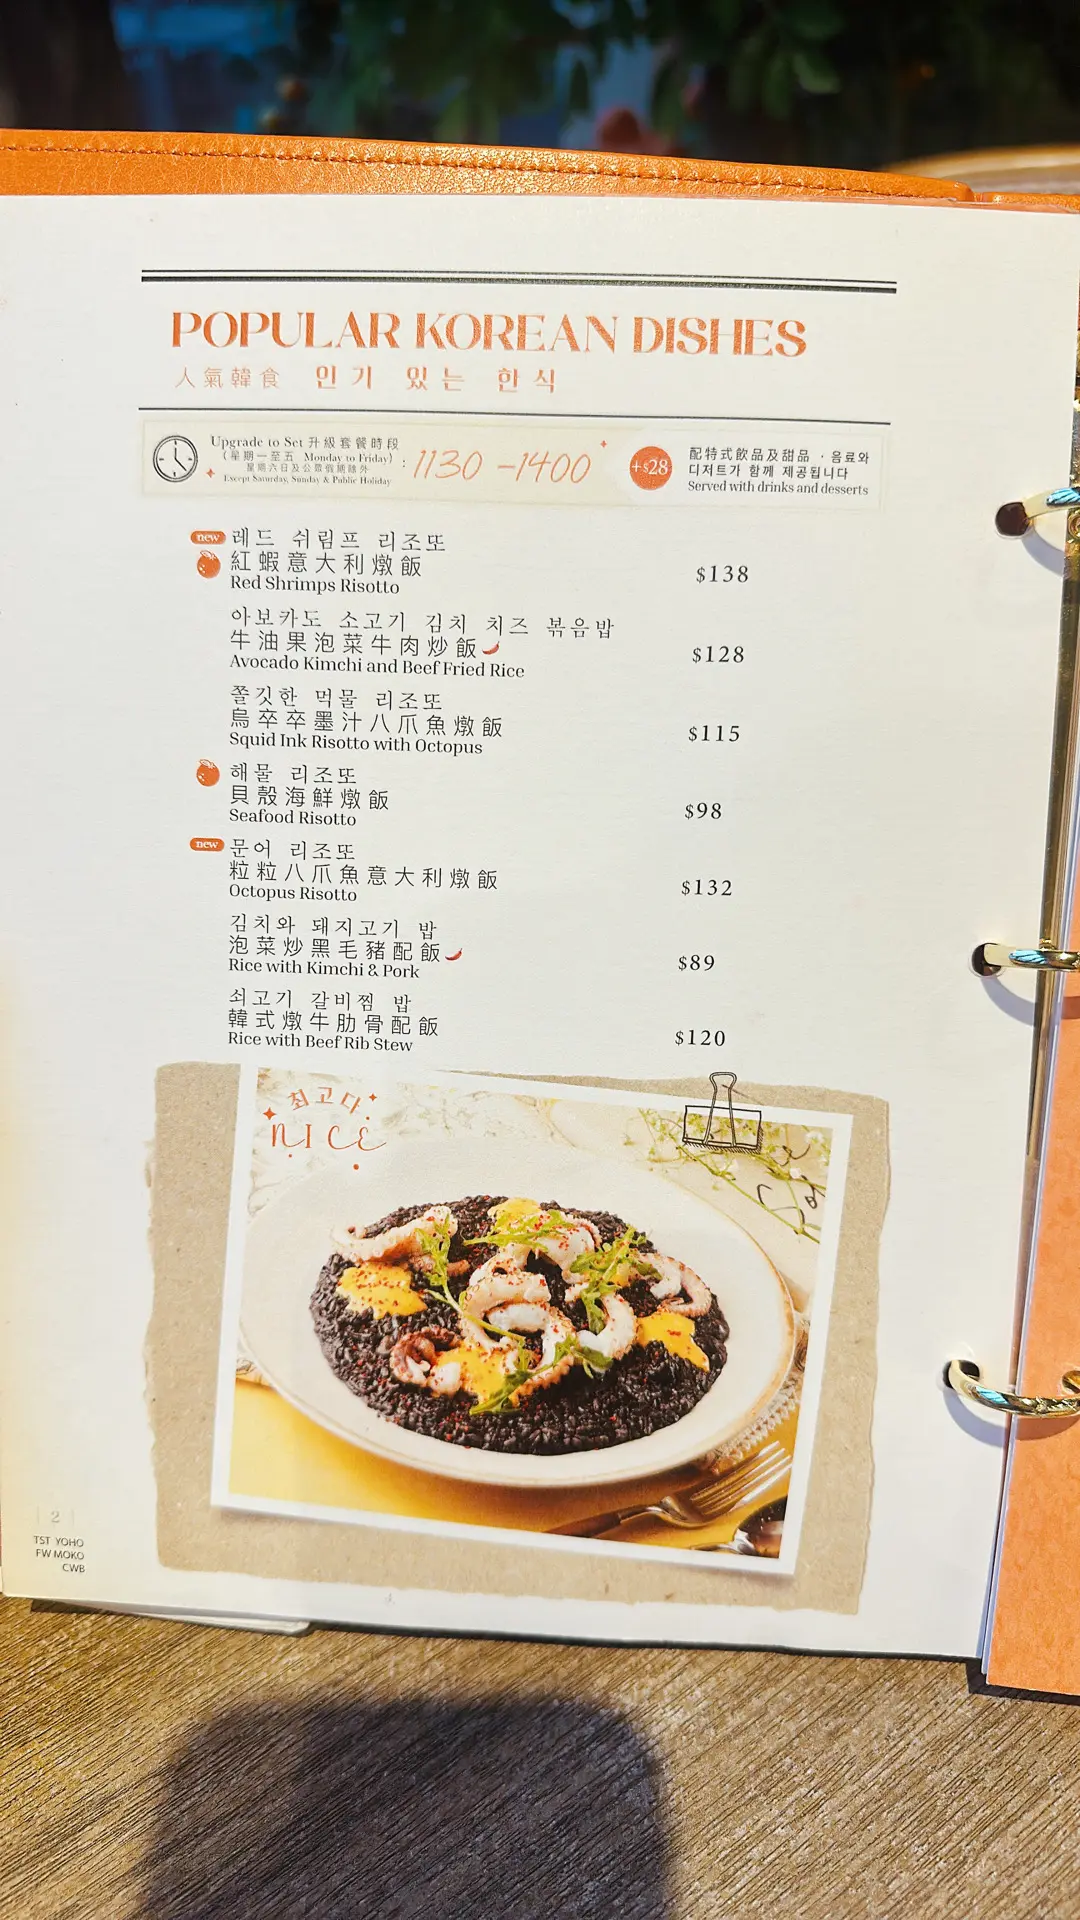 POPULAR KOREAN DISHES
人氣韓食 인기 있는 한식
Upgrade to Set 升級套餐時段
(星期一至五 Monday to Friday) :
星期六日及公眾假期除外
Except Saturday, Sunday & Public Holiday
1130 -1400
+$28
配特式飲品及甜品 · 음료와
디저트가 함께 제공됩니다
Served with drinks and desserts
new 레드 쉬림프 리조또
紅蝦意大利燉飯
Red Shrimps Risotto
$138
아보카도 소고기 김치 치즈 볶음밥
牛油果泡菜牛肉炒飯
Avocado Kimchi and Beef Fried Rice
$128
쫄깃한 먹물 리조또
烏卒卒墨汁八爪魚燉飯
Squid Ink Risotto with Octopus
$115
해물 리조또
貝殼海鮮燉飯
Seafood Risotto
$98
new 문어 리조또
粒粒八爪魚意大利燉飯
Octopus Risotto
$132
김치와 돼지고기 밥
泡菜炒黑毛豬配飯
Rice with Kimchi & Pork
$89
쇠고기 갈비찜 밥
韓式燉牛肋骨配飯
Rice with Beef Rib Stew
$120
최고다
NICE
2
TST YOHO
FW MOKO
CWB